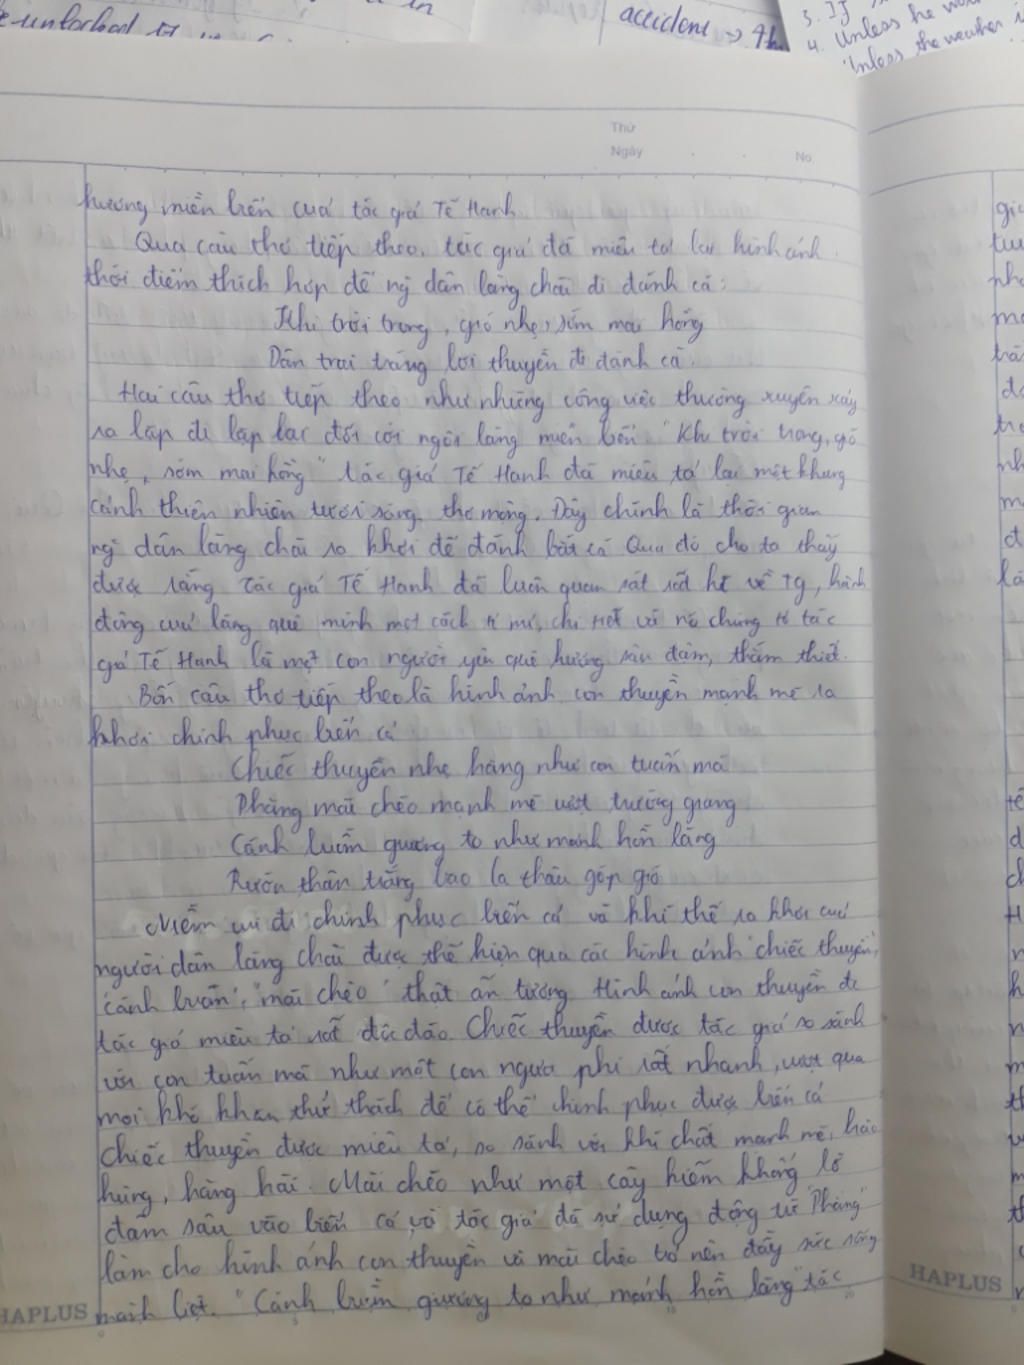 accident → th
3. If
4. Unless he wor
Unless the weather i
Thứ
Ngày
No.
hương miền biển của tác giả Tế Hanh
Qua câu thơ tiếp theo, tác giả đã miêu tả lại hình ảnh
thời điểm thích hợp để ng dân làng chài đi đánh cá:
Khi trời trong, gió nhẹ, sớm mai hồng
Dân trai tráng bơi thuyền đi đánh cá.
Hai câu thơ tiếp theo như những công việc thường xuyên xảy
ra lặp đi lặp lại đối với ngôi làng miền biển. "Khi trời trong, gió
nhẹ, sớm mai hồng" tác giả Tế Hanh đã miêu tả lại một khung
cảnh thiên nhiên tươi sáng, thơ mộng. Đây chính là thời gian
ng dân làng chài ra khơi để đánh bắt cá Qua đó cho ta thấy
được rằng tác giả Tế Hanh đã luôn quan sát rất kĩ về tg, hành
động của làng quê mình một cách tỉ mỉ, chi tiết và nó chứng tỏ tác
giả Tế Hanh là một con người yêu quê hương sâu đậm, thắm thiết.
Bốn câu thơ tiếp theo là hình ảnh con thuyền mạnh mẽ ra
khơi chinh phục biển cả
Chiếc thuyền nhẹ hăng như con tuấn mã
Phăng mái chèo mạnh mẽ vượt trường giang
Cánh buồm giương to như mảnh hồn làng
Rướn thân trắng bao la thâu góp gió
Niềm vui đi chinh phục biển cả và khí thế ra khơi của
người dân làng chài được thể hiện qua các hình ảnh "chiếc thuyền",
"cánh buồm", "mái chèo" thật ấn tượng Hình ảnh con thuyền đc
tác giả miêu tả rất độc đáo. Chiếc thuyền được tác giả so sánh
với con tuấn mã như một con ngựa phi rất nhanh, vượt qua
mọi khó khăn thử thách để có thể chinh phục được biển cả
Chiếc thuyền được miêu tả, so sánh với khí chất mạnh mẽ, hào
hùng, hăng hái. Mái chèo như một cây kiếm khổng lồ
đâm sâu vào biển cả và tác giả đã sử dụng động từ "Phăng"
làm cho hình ảnh con thuyền và mái chèo trở nên đầy sức sống
mãnh liệt. "Cánh buồm giương to như mảnh hồn làng" tác
HAPLUS
HAPLUS